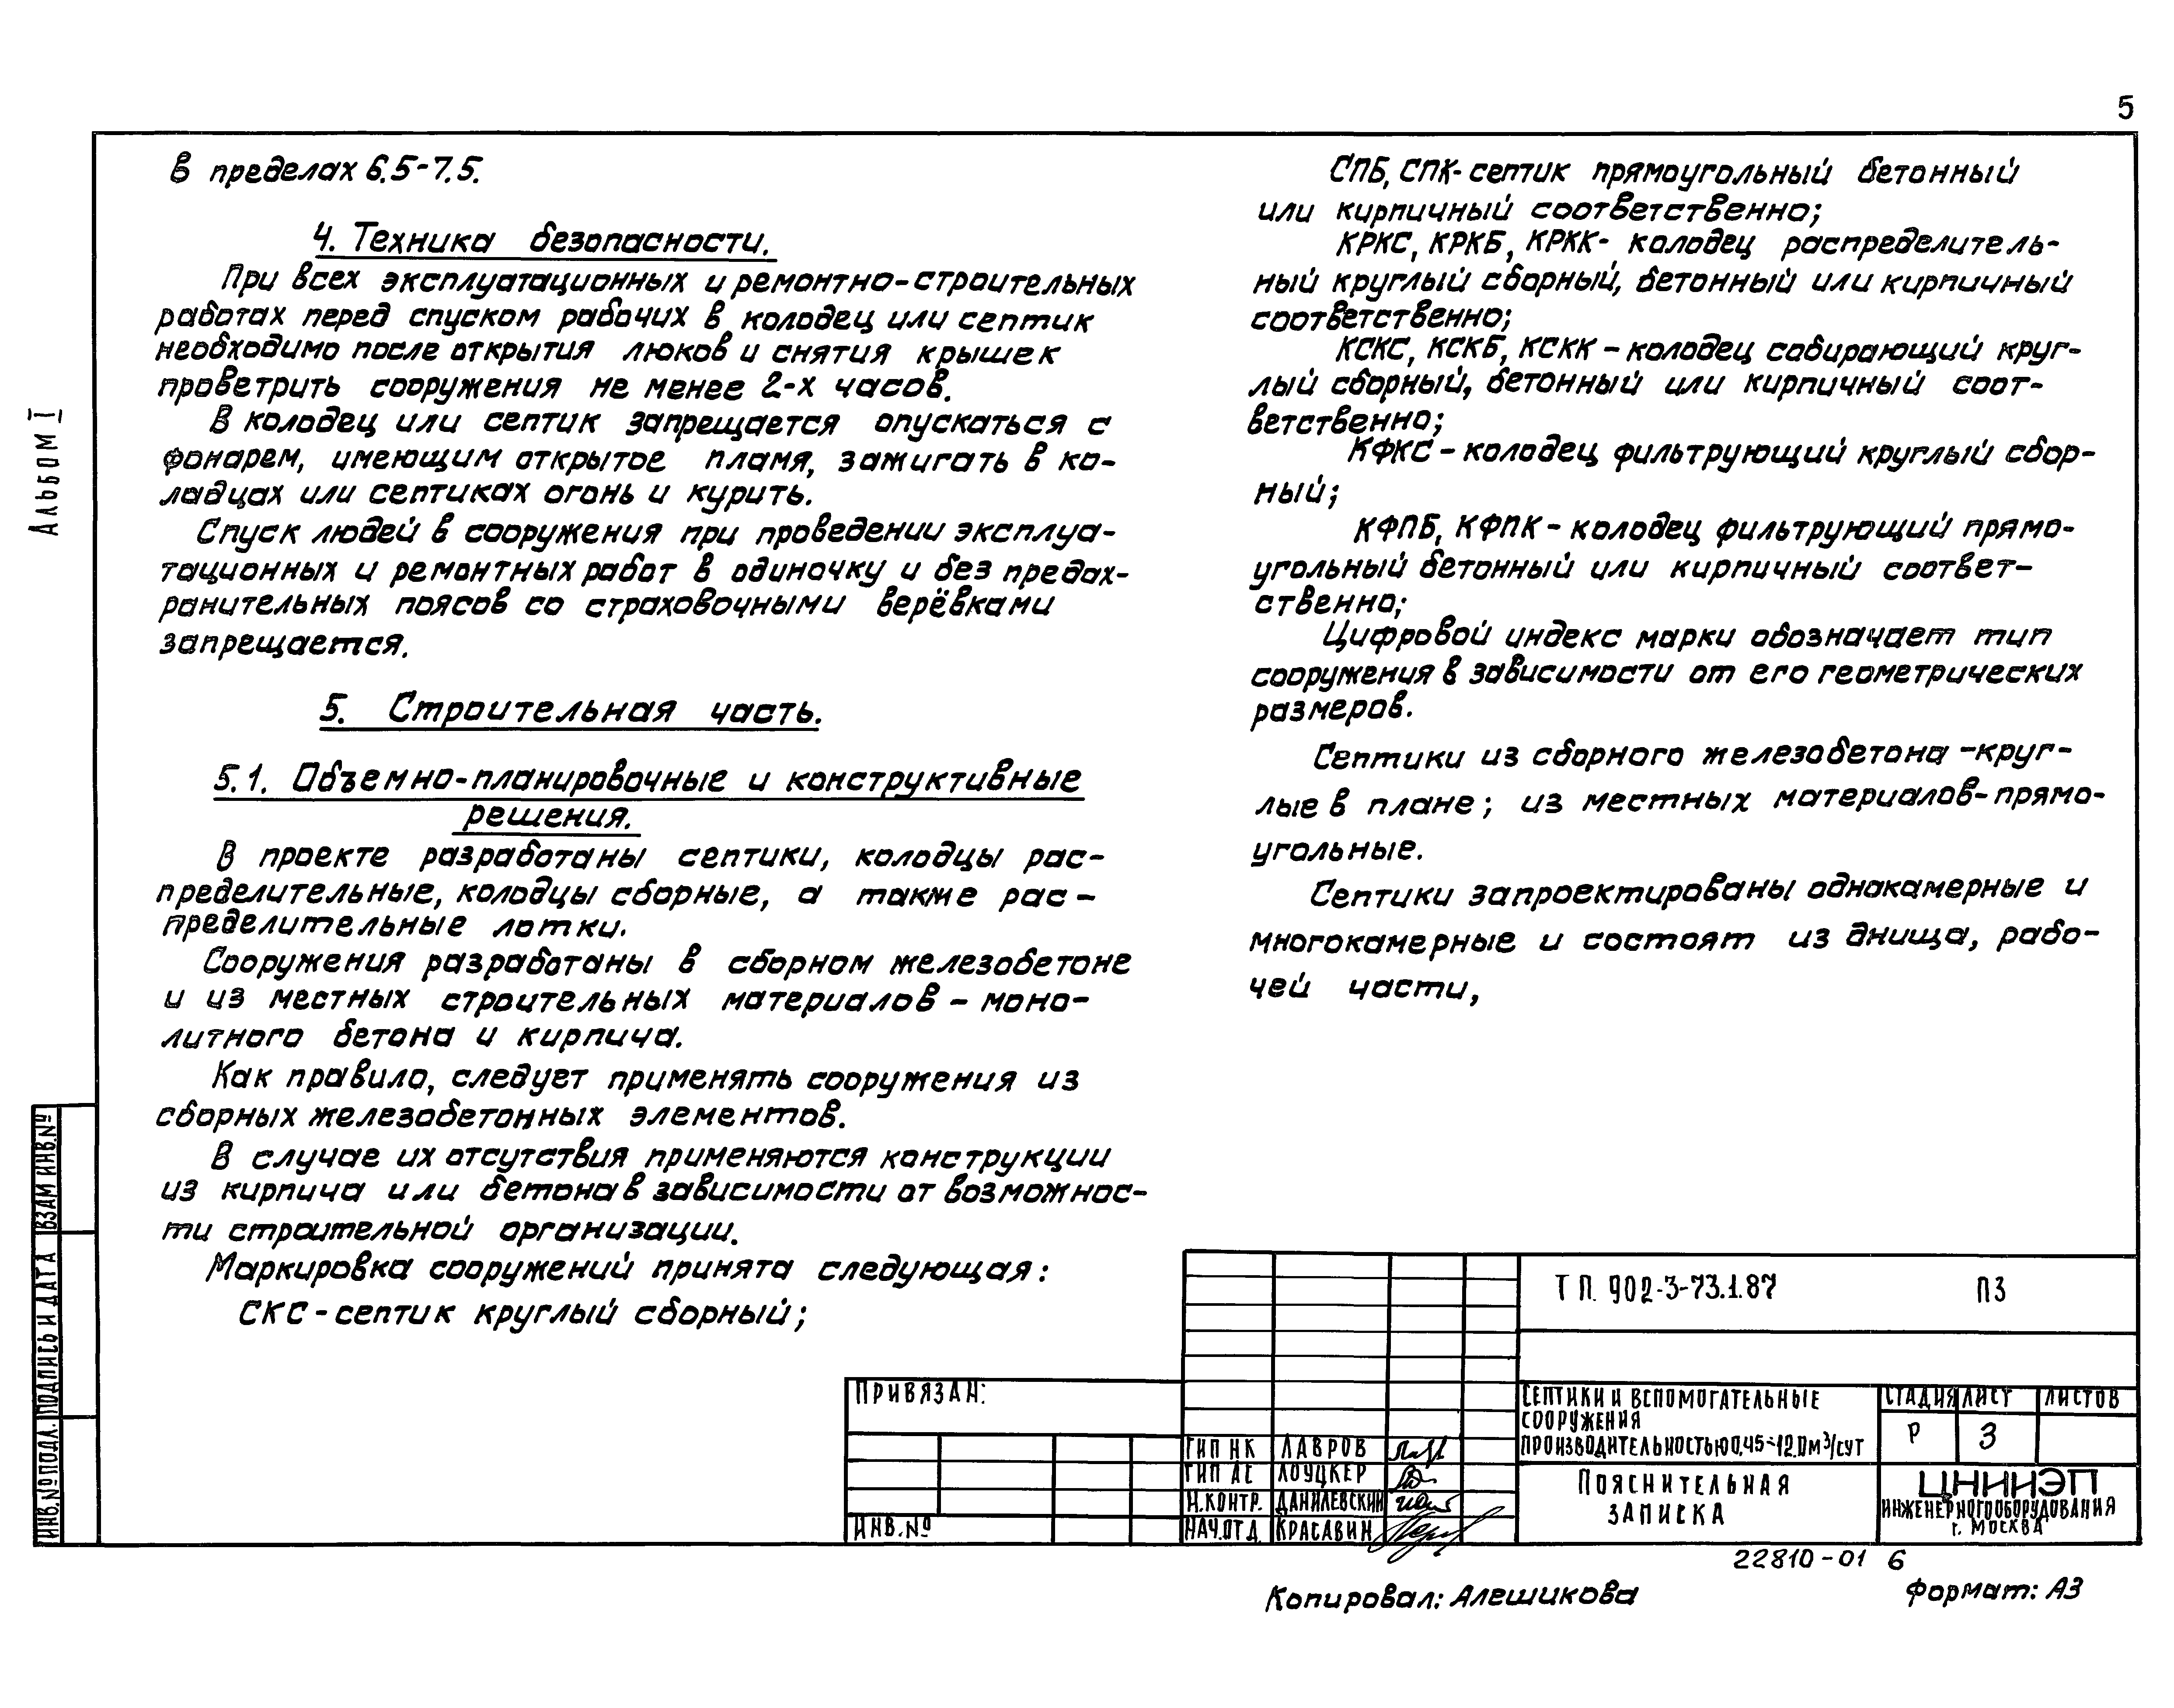 5
Альбом I
в пределах 6.5-7.5.
4. Техника безопасности.
При всех эксплуатационных и ремонтно-строительных
работах перед спуском рабочих в колодец или септик
необходимо после открытия люков и снятия крышек
проветрить сооружения не менее 2-х часов.
В колодец или септик запрещается опускаться с
фонарем, имеющим открытое пламя, зажигать в ко-
лодцах или септиках огонь и курить.
Спуск людей в сооружения при проведении эксплуа-
тационных и ремонтных работ в одиночку и без предох-
ранительных поясов со страховочными верёвками
запрещается.
5. Строительная часть.
5.1. Объемно-планировочные и конструктивные
решения.
В проекте разработаны септики, колодцы рас-
пределительные, колодцы сборные, а также рас-
пределительные лотки.
Сооружения разработаны в сборном железобетоне
и из местных строительных материалов - моно-
литного бетона и кирпича.
Как правило, следует применять сооружения из
сборных железобетонных элементов.
В случае их отсутствия применяются конструкции
из кирпича или бетона в зависимости от возможнос-
ти строительной организации.
Маркировка сооружений принята следующая:
СКС - септик круглый сборный;
СПБ, СПК - септик прямоугольный бетонный
или кирпичный соответственно;
КРКС, КРКБ, КРКК - колодец распределитель-
ный круглый сборный, бетонный или кирпичный
соответственно;
КСКС, КСКБ, КСКК - колодец собирающий круг-
лый сборный, бетонный или кирпичный соот-
ветственно;
КФКС - колодец фильтрующий круглый сбор-
ный;
КФПБ, КФПК - колодец фильтрующий прямо-
угольный бетонный или кирпичный соответ-
ственно;
Цифровой индекс марки обозначает тип
сооружения в зависимости от его геометрических
размеров.
Септики из сборного железобетона - круг-
лые в плане; из местных материалов - прямо-
угольные.
Септики запроектированы однокамерные и
многокамерные и состоят из днища, рабо-
чей части,
ВЗАМ ИНВ.№
ПОДПИСЬ И ДАТА
ИНВ.№ ПОДЛ.
ПРИВЯЗАН:
ИНВ.№
ГИП НК ЛАВРОВ
ГИП АС ЛОУЦКЕР
Н.КОНТР. ДАНИЛЕВСКИЙ
НАЧ.ОТД. КРАСАВИН
ТП. 902-3-73.1.87 ПЗ
СЕПТИКИ И ВСПОМОГАТЕЛЬНЫЕ
СООРУЖЕНИЯ
ПРОИЗВОДИТЕЛЬНОСТЬЮ 0,45÷12.0м³/сут
СТАДИЯ ЛИСТ ЛИСТОВ
Р 3
ПОЯСНИТЕЛЬНАЯ
ЗАПИСКА
ЦНИИЭП
ИНЖЕНЕРНОГО ОБОРУДОВАНИЯ
г. МОСКВА
22810-01 6
Копировал: Алешикова
Формат: А3